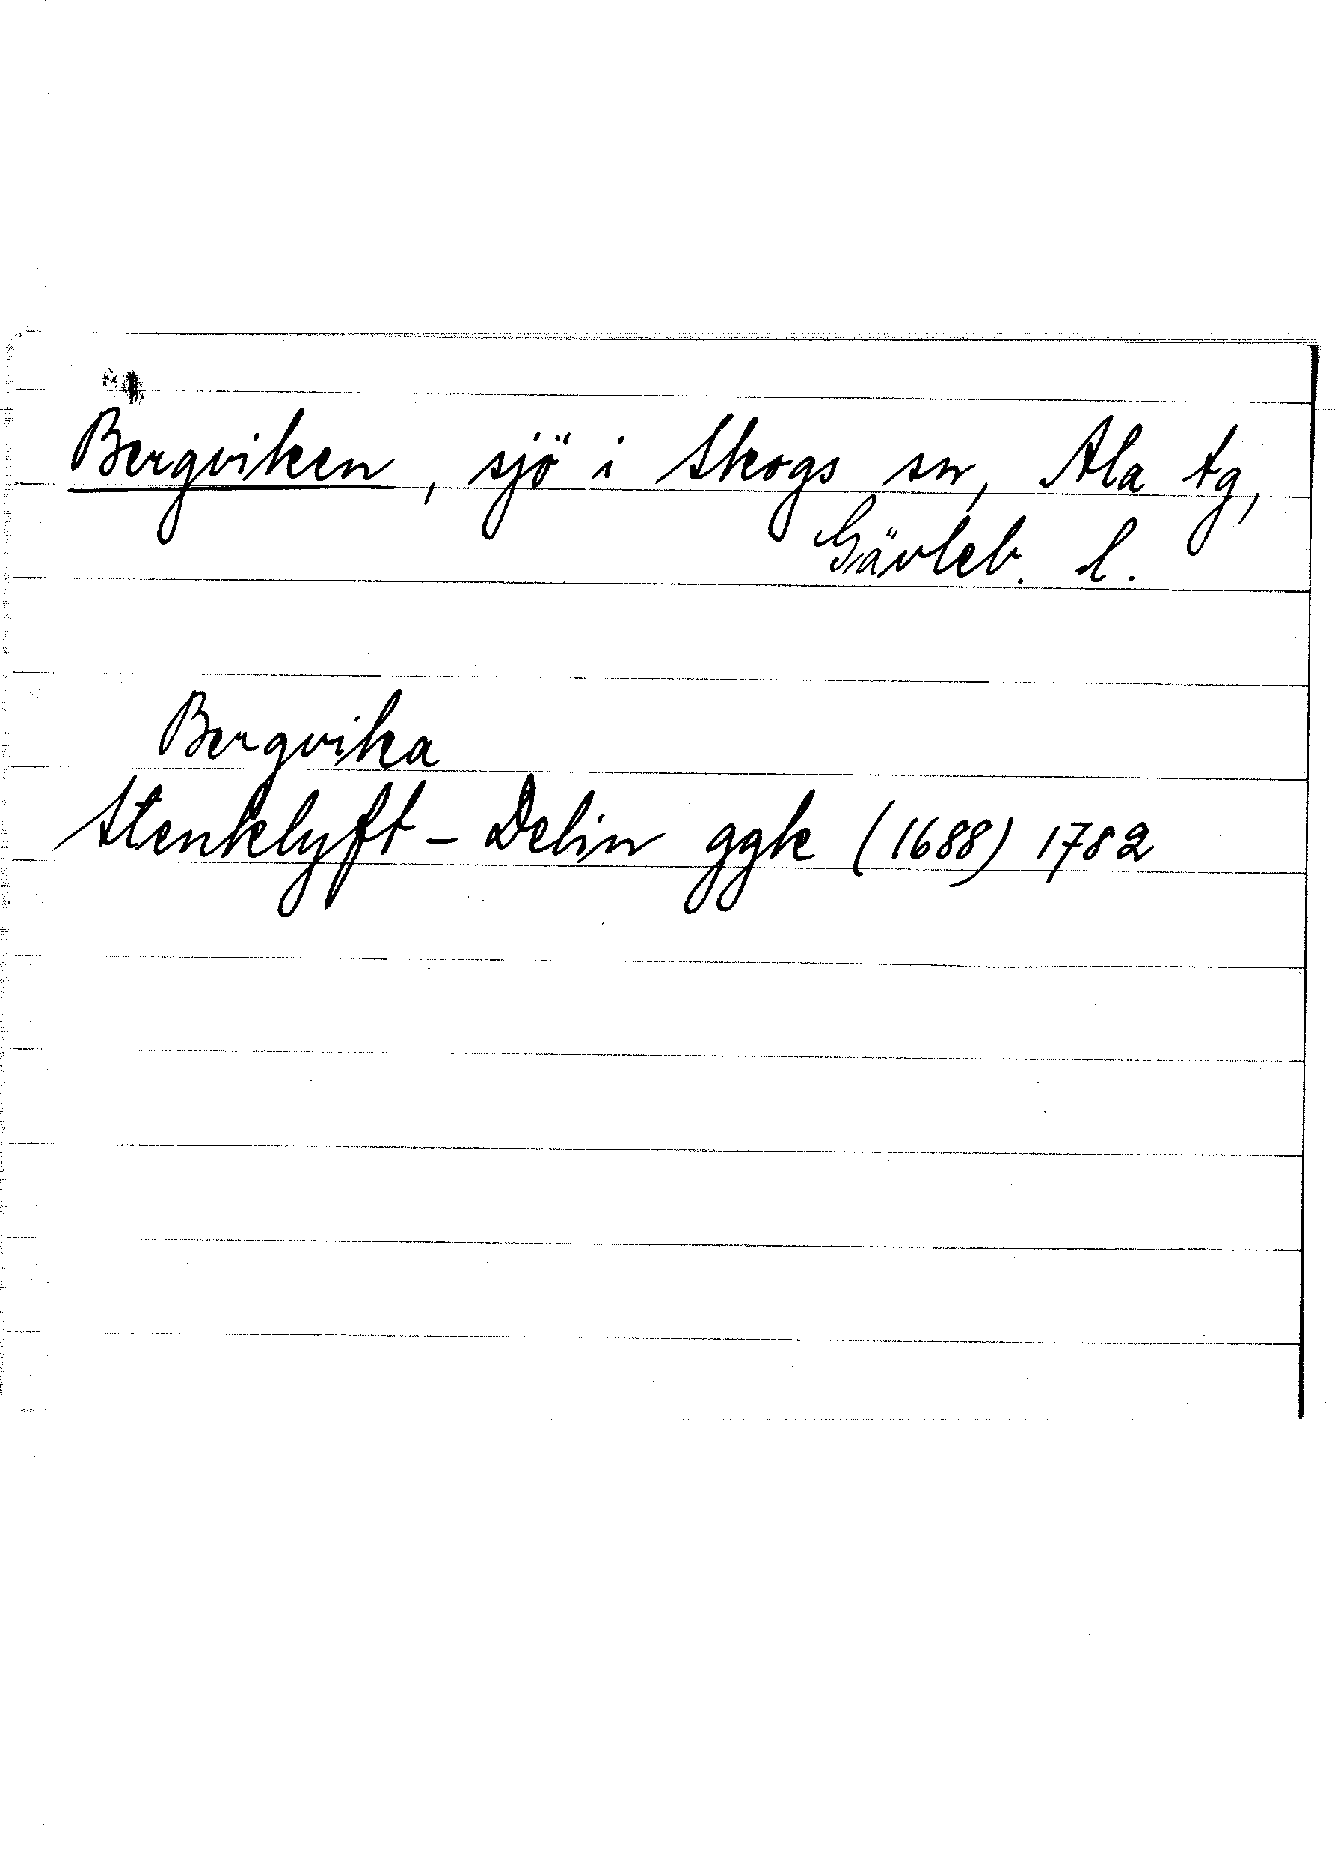 Bergviken, sjö i Skogs sn, Ala tg,
Gävleb. l.
Bergvika
Stenklyft - Delin ggk (1688) 1782